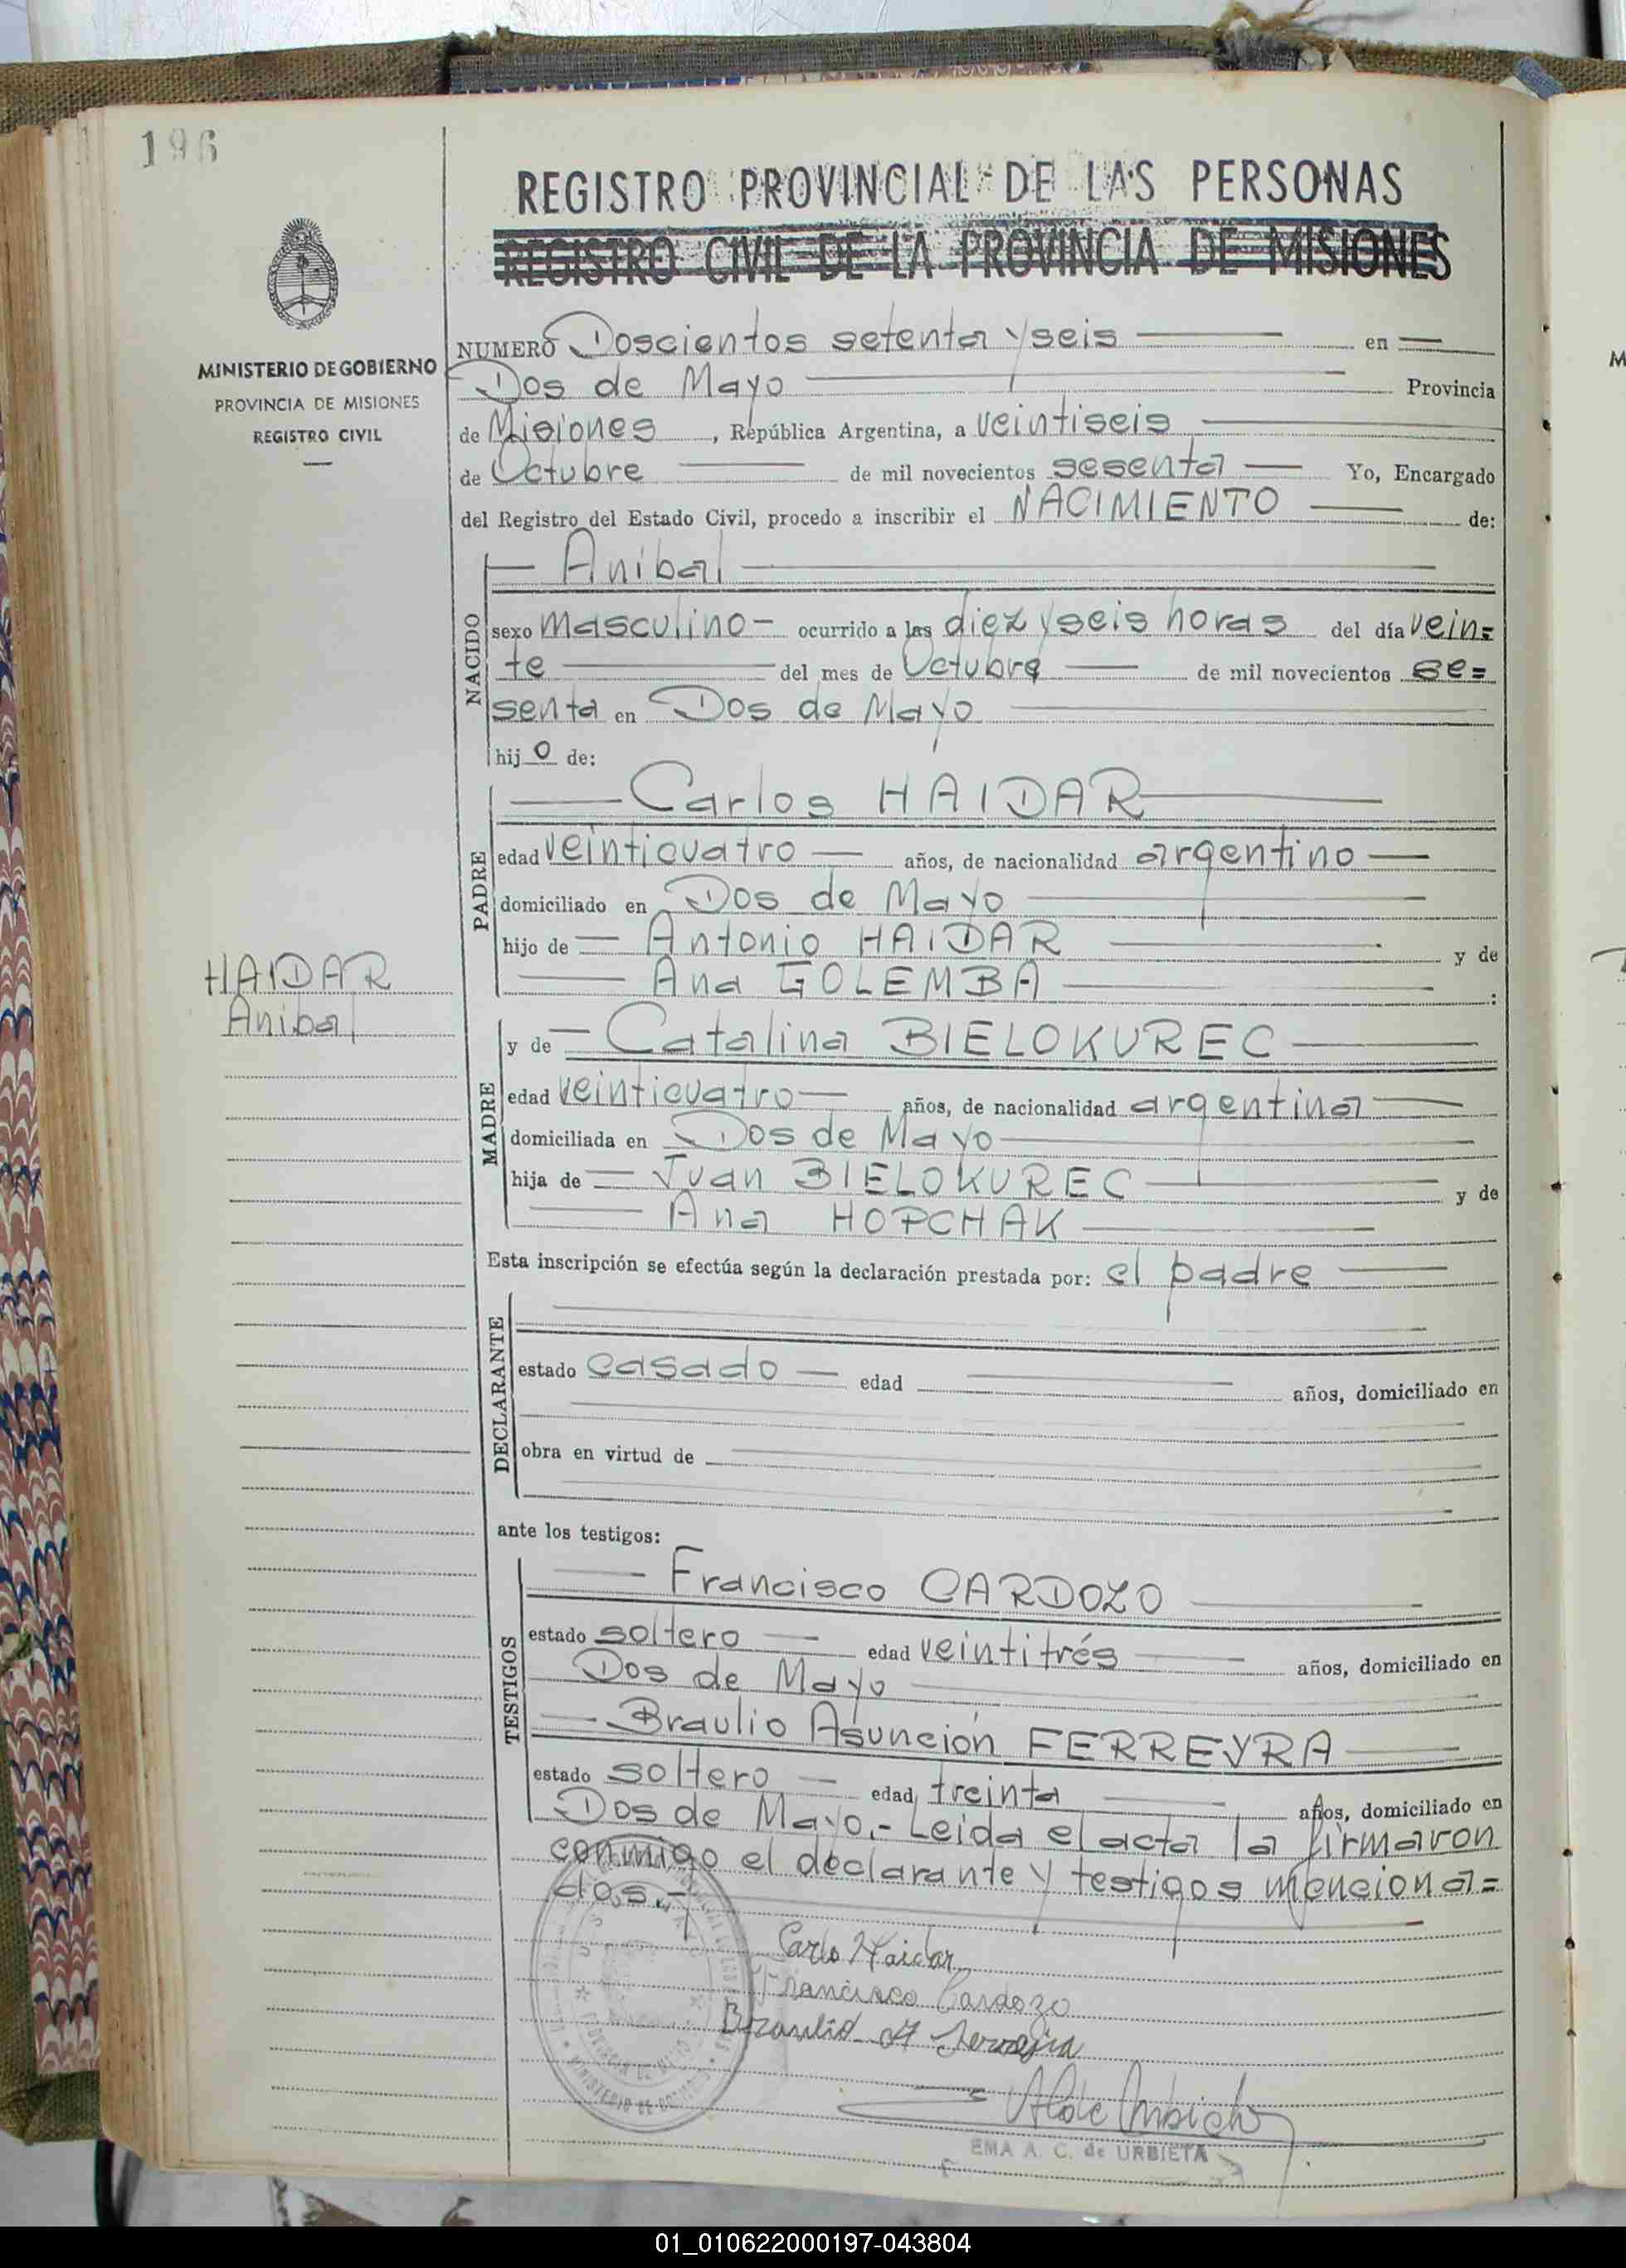 196
REGISTRO PROVINCIAL DE LAS PERSONAS
REGISTRO CIVIL DE LA PROVINCIA DE MISIONES
MINISTERIO DE GOBIERNO
PROVINCIA DE MISIONES
REGISTRO CIVIL
NUMERO Doscientos setenta y seis en
Dos de Mayo Provincia
de Misiones, República Argentina, a veintiseis
de Octubre de mil novecientos sesenta Yo, Encargado
del Registro del Estado Civil, procedo a inscribir el NACIMIENTO de:
NACIDO
Anibal
sexo masculino- ocurrido a las diez y seis horas del día vein=
te del mes de Octubre de mil novecientos se=
senta en Dos de Mayo
hijo de:
PADRE
Carlos HAIDAR
edad veinticuatro años, de nacionalidad argentino
domiciliado en Dos de Mayo
hijo de Antonio HAIDAR y de
Ana GOLEMBA :
HAIDAR
Anibal
MADRE
y de Catalina BIELOKUREC
edad veinticuatro años, de nacionalidad argentina
domiciliada en Dos de Mayo
hija de Juan BIELOKUREC y de
Ana HOPCHAK
Esta inscripción se efectúa según la declaración prestada por: el padre
DECLARANTE
estado casado edad años, domiciliado en
obra en virtud de
ante los testigos:
TESTIGOS
Francisco CARDOZO
estado soltero edad veintitrés años, domiciliado en
Dos de Mayo
Braulio Asunción FERREYRA
estado soltero edad treinta años, domiciliado en
Dos de Mayo.- Leida el acta la firmaron
conmigo el declarante y testigos menciona=
dos.-
Carlo Haidar
Francisco Cardozo
Braulio A Ferreyra
EMA A. C. de URBIETA
M
01_010622000197-043804